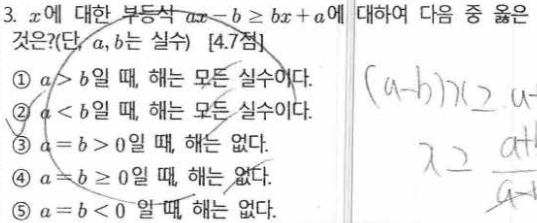 3. x에 대한 부등식 ax-b ≥ bx+a에 대하여 다음 중 옳은
것은?(단, a, b는 실수) [4.7점]
① a > b일 때, 해는 모든 실수이다.
② a < b일 때, 해는 모든 실수이다.
③ a = b > 0일 때, 해는 없다.
④ a = b ≥ 0일 때, 해는 없다.
⑤ a = b < 0 일 때, 해는 없다.
(a-b)x ≥
x ≥